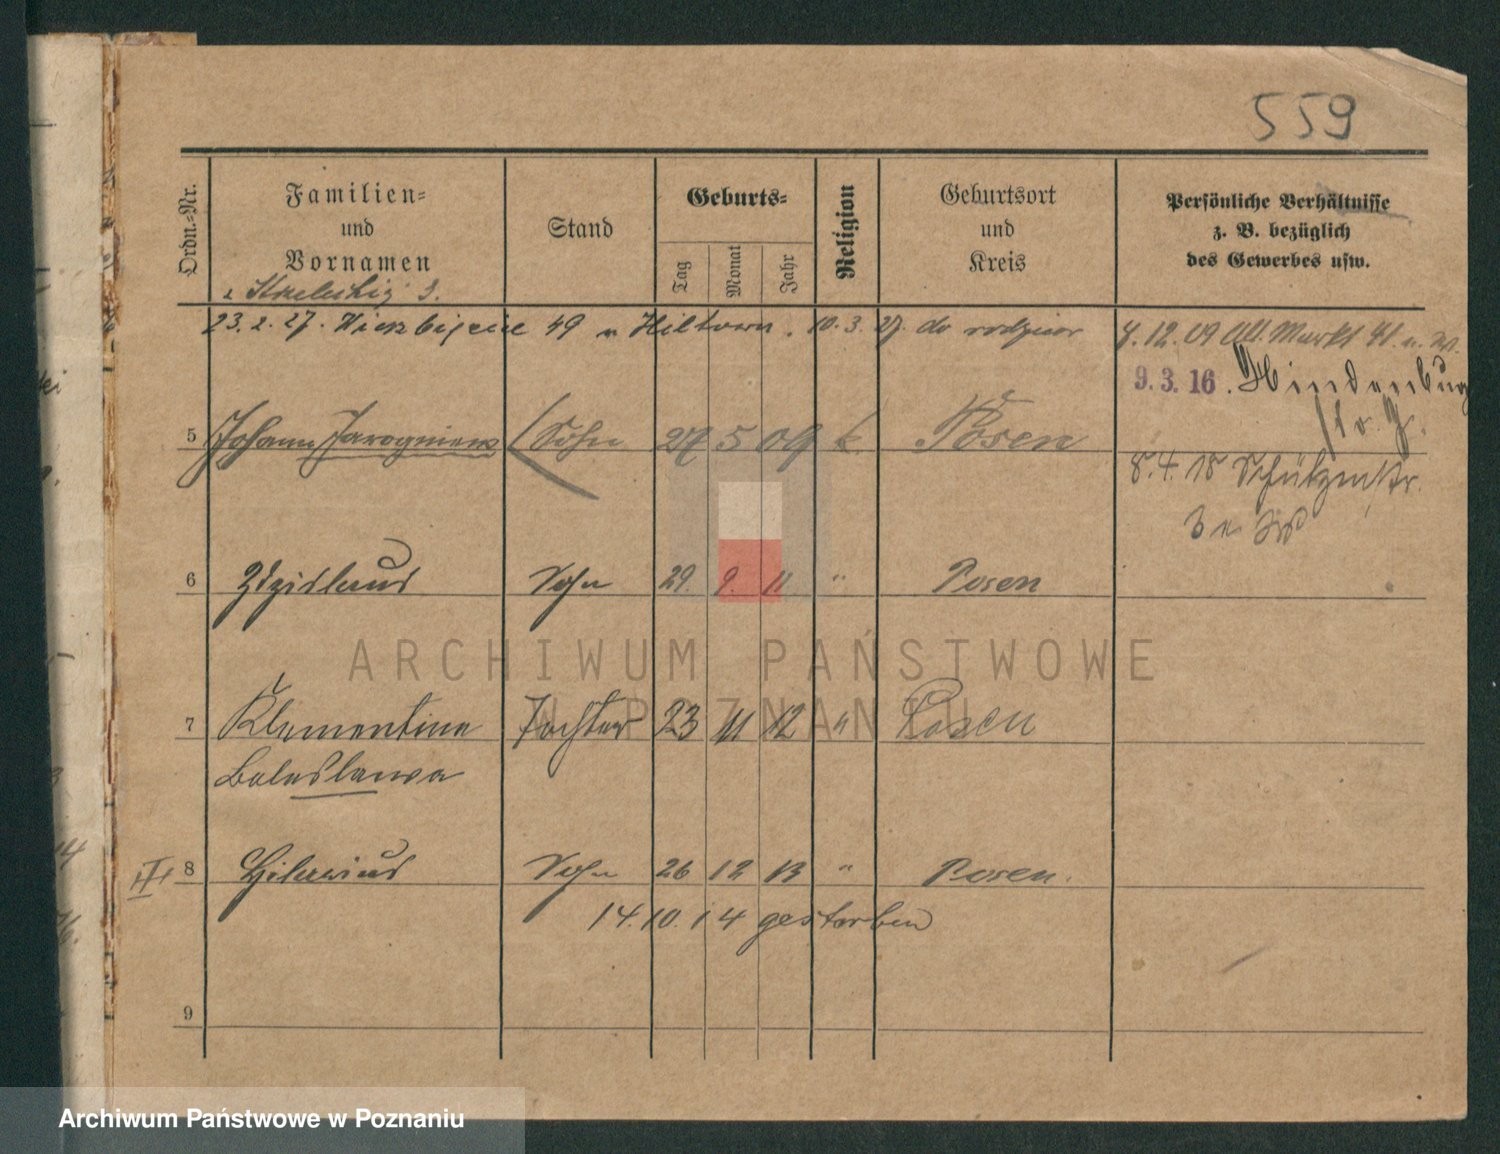 559
Ordn.=Nr.
Familien=
und
Vornamen
Stand
Geburts=
Tag
Monat
Jahr
Religion
Geburtsort
und
Kreis
Persönliche Verhältnisse
z. B. bezüglich
des Gewerbes usw.
23.2.27. 49 10.3.27. do
4.12.09 Alt. Markt 41.
9.3.16. Hindenburg
5 Johann Sohn 27 5 09 k. Posen
8.4.18 Schützenstr.
6 Zdzislaus Sohn 29. 9. 11 " Posen
ARCHIWUM PAŃSTWOWE
W POZNANIU
7 Klementine Tochter 23 11 12 " Posen
Boleslawa
III 8 Hilarius Sohn 26 12 13 " Posen.
14.10.14 gestorben
9
Archiwum Państwowe w Poznaniu